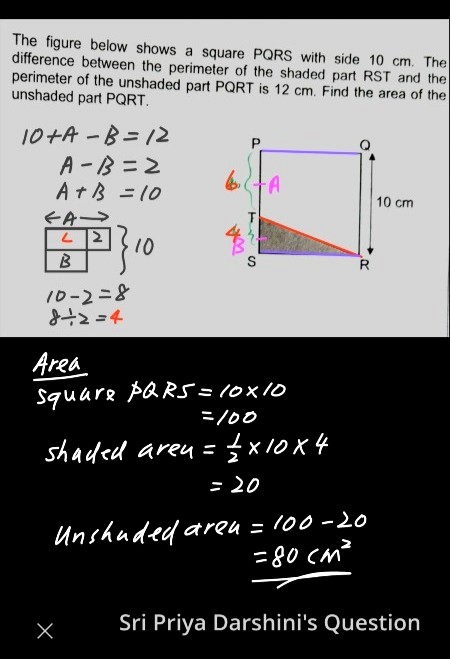 The figure below shows a square PQRS with side 10 cm. The
difference between the perimeter of the shaded part RST and the
perimeter of the unshaded part PQRT is 12 cm. Find the area of the
unshaded part PQRT.
10+A-B=12
A-B=2
A+B=10
←A→
2
B
} 10
10-2=8
8÷2=4
P
Q
6
A
10 cm
T
4
B
S
R
Area
square PQRS = 10×10
=100
shaded area = 1/2 × 10 × 4
= 20
Unshaded area = 100-20
=80 cm²
× Sri Priya Darshini's Question